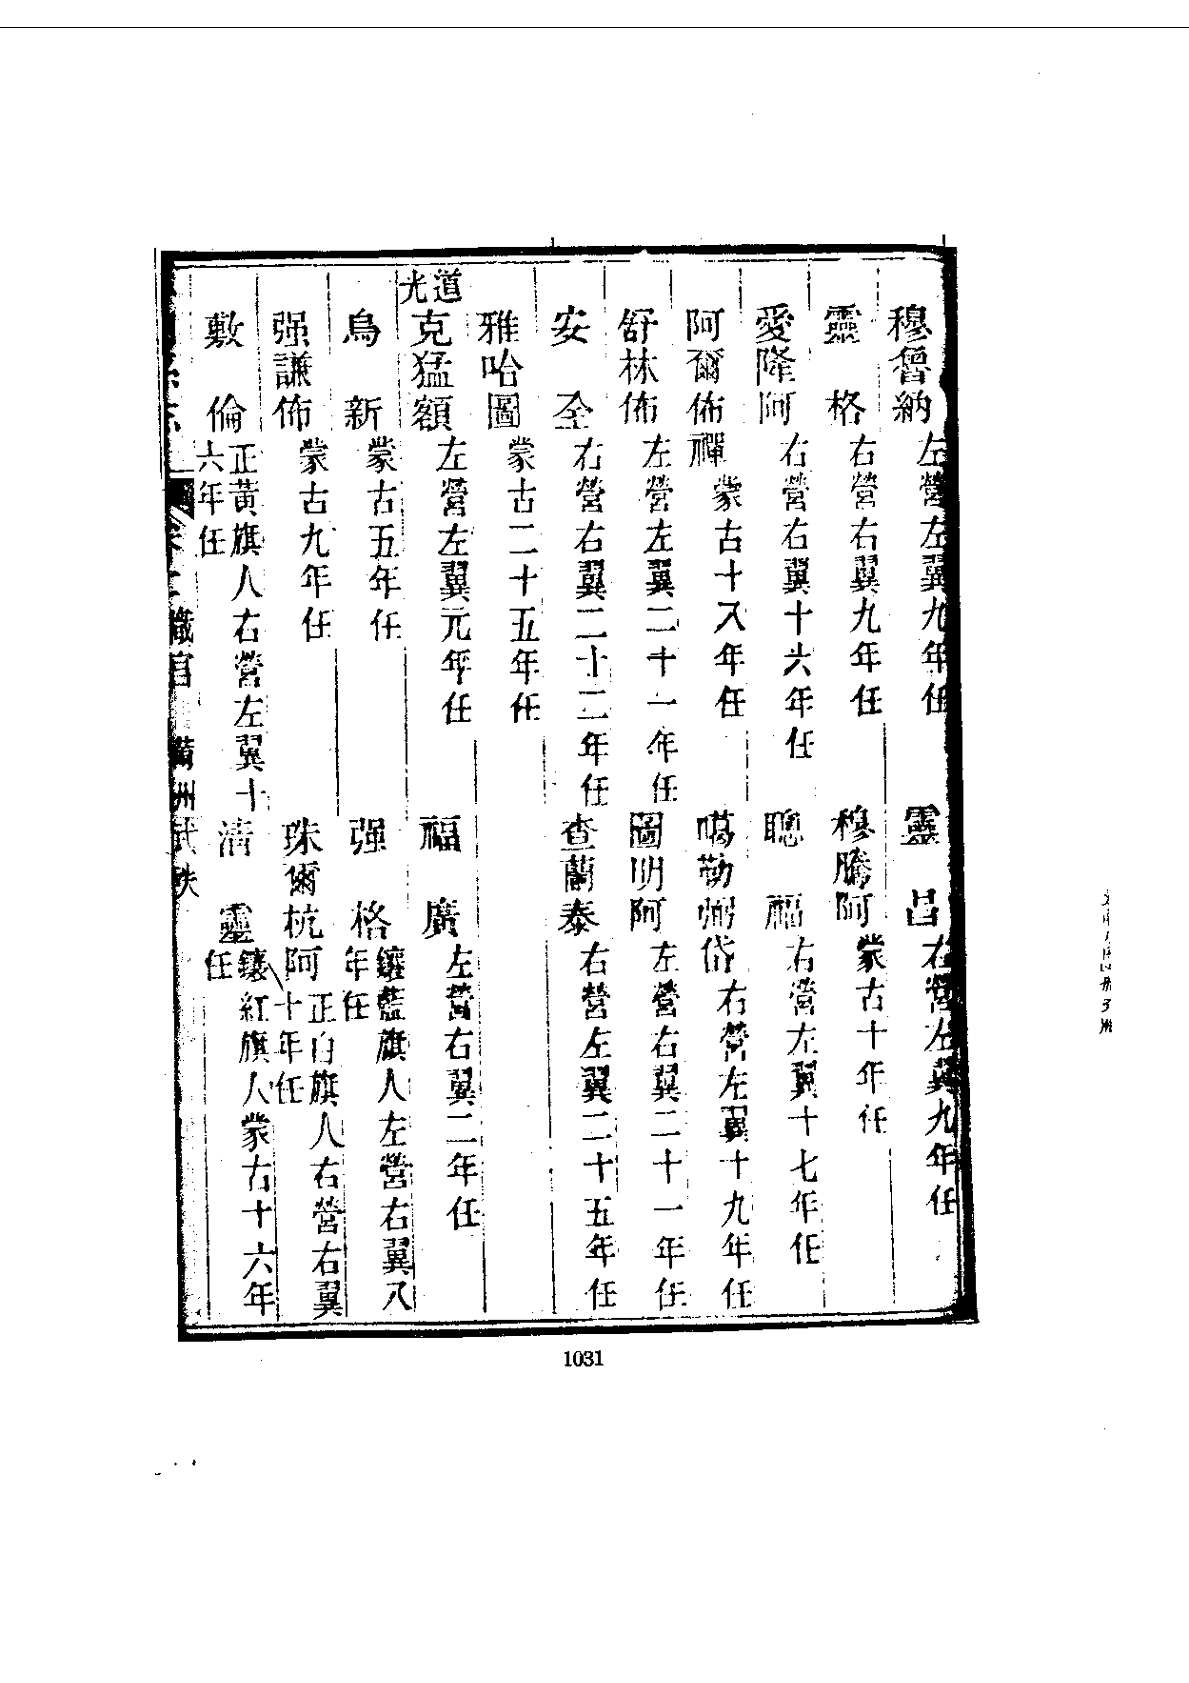 穆魯納 左營左翼九年任 靈呂 右營左翼九年任
靈格 右營右翼九年任 穆騰阿 蒙古十年任
愛隆阿 右營右翼十六年任 聰福 右營左翼十七年任
阿爾佈禪 蒙古十八年任 噶勒弼岱 右營左翼十九年任
舒林佈 左營左翼二十一年任 圖明阿 左營右翼二十一年任
安全 右營右翼二十二年任 查蘭泰 右營左翼二十五年任
雅哈圖 蒙古二十五年任
道光
克猛額 左營左翼元年任 福廣 左營右翼二年任
烏新 蒙古五年任 强格 鑲藍旗人左營右翼八年任
强謙佈 蒙古九年任 珠爾杭阿 正白旗人右營右翼十年任
敷倫 正黃旗人右營左翼十六年任 清靈 鑲紅旗人蒙古十六年任
職官 滿洲武秩
1031